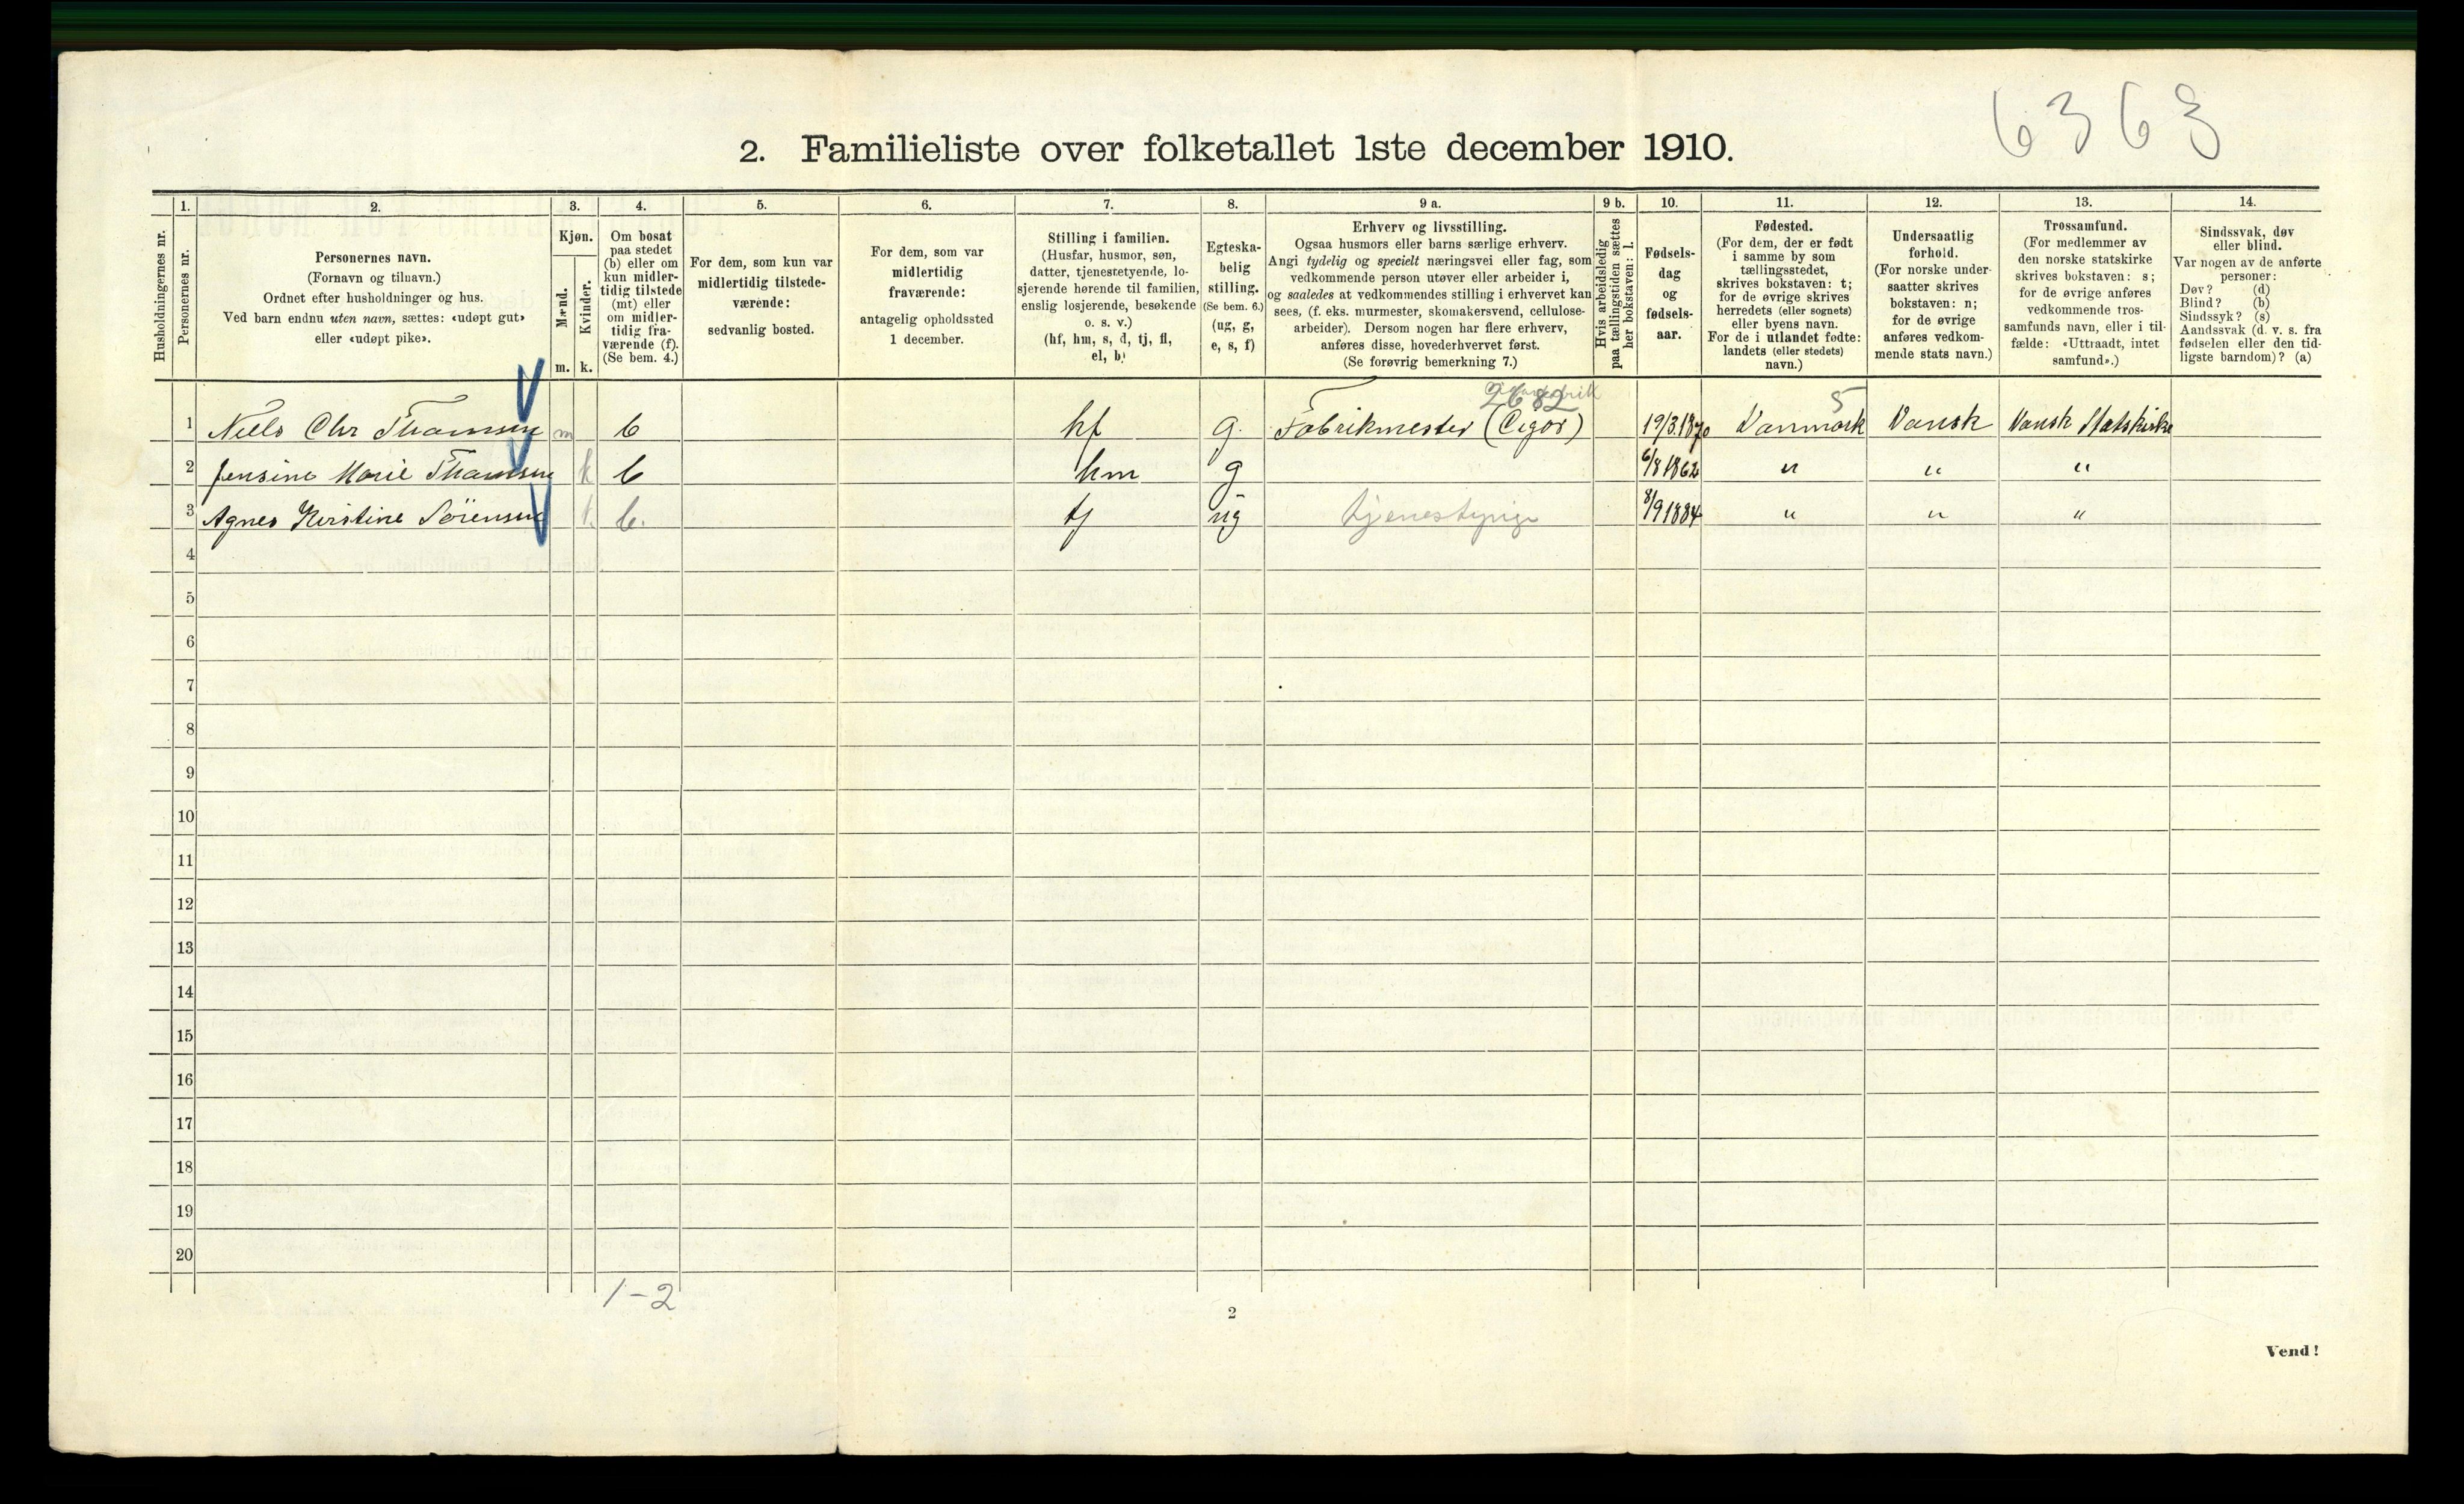 6363
2. Familieliste over folketallet 1ste december 1910.
Husholdningernes nr.
1.
Personernes nr.
2.
Personernes navn.
(Fornavn og tilnavn.)
Ordnet efter husholdninger og hus.
Ved barn endnu uten navn, sættes: «udøpt gut»
eller «udøpt pike».
3.
Kjøn.
Mænd.
Kvinder.
m. k.
4.
Om bosat
paa stedet
(b) eller om
kun midler-
tidig tilstede
(mt) eller
om midler-
tidig fra-
værende (f).
(Se bem. 4.)
5.
For dem, som kun var
midlertidig tilstede-
værende:
sedvanlig bosted.
6.
For dem, som var
midlertidig
fraværende:
antagelig opholdssted
1 december.
7.
Stilling i familien.
(Husfar, husmor, søn,
datter, tjenestetyende, lo-
sjerende hørende til familien,
enslig losjerende, besøkende
o. s. v.)
(hf, hm, s, d, tj, fl,
el, b)
8.
Egteska-
belig
stilling.
(Se bem. 6.)
(ug, g,
e, s, f)
9 a.
Erhverv og livsstilling.
Ogsaa husmors eller barns særlige erhverv.
Angi tydelig og specielt næringsvei eller fag, som
vedkommende person utøver eller arbeider i,
og saaledes at vedkommendes stilling i erhvervet kan
sees, (f. eks. murmester, skomakersvend, cellulose-
arbeider). Dersom nogen har flere erhverv,
anføres disse, hovederhvervet først.
(Se forøvrig bemerkning 7.)
9 b.
Hvis arbeidsledig
paa tællingstiden sættes
her bokstaven: l.
10.
Fødsels-
dag
og
fødsels-
aar.
11.
Fødested.
(For dem, der er født
i samme by som
tællingsstedet,
skrives bokstaven: t;
for de øvrige skrives
herredets (eller sognets)
eller byens navn.
For de i utlandet fødte:
landets (eller stedets)
navn.)
12.
Undersaatlig
forhold.
(For norske under-
saatter skrives
bokstaven: n;
for de øvrige
anføres vedkom-
mende stats navn.)
13.
Trossamfund.
(For medlemmer av
den norske statskirke
skrives bokstaven: s;
for de øvrige anføres
vedkommende tros-
samfunds navn, eller i til-
fælde: «Uttraadt, intet
samfund».)
14.
Sindssvak, døv
eller blind.
Var nogen av de anførte
personer:
Døv? (d)
Blind? (b)
Sindssyk? (s)
Aandssvak (d. v. s. fra
fødselen eller den tid-
ligste barndom)? (a)
2682 5
1 Niels Chr Thamsen m b hf g. Fabrikmester (Cigar) 19/3.1870 Danmark Dansk Dansk Statskirke
2 Jensine Marie Thamsen k b hm g 6/8 1862 " " "
3 Agnes Kirstine Sörensen k. b. tj ug tjenestepige 8/9 1884 " " "
4
5
6
7
8
9
10
11
12
13
14
15
16
17
18
19
20
1-2
2
Vend!